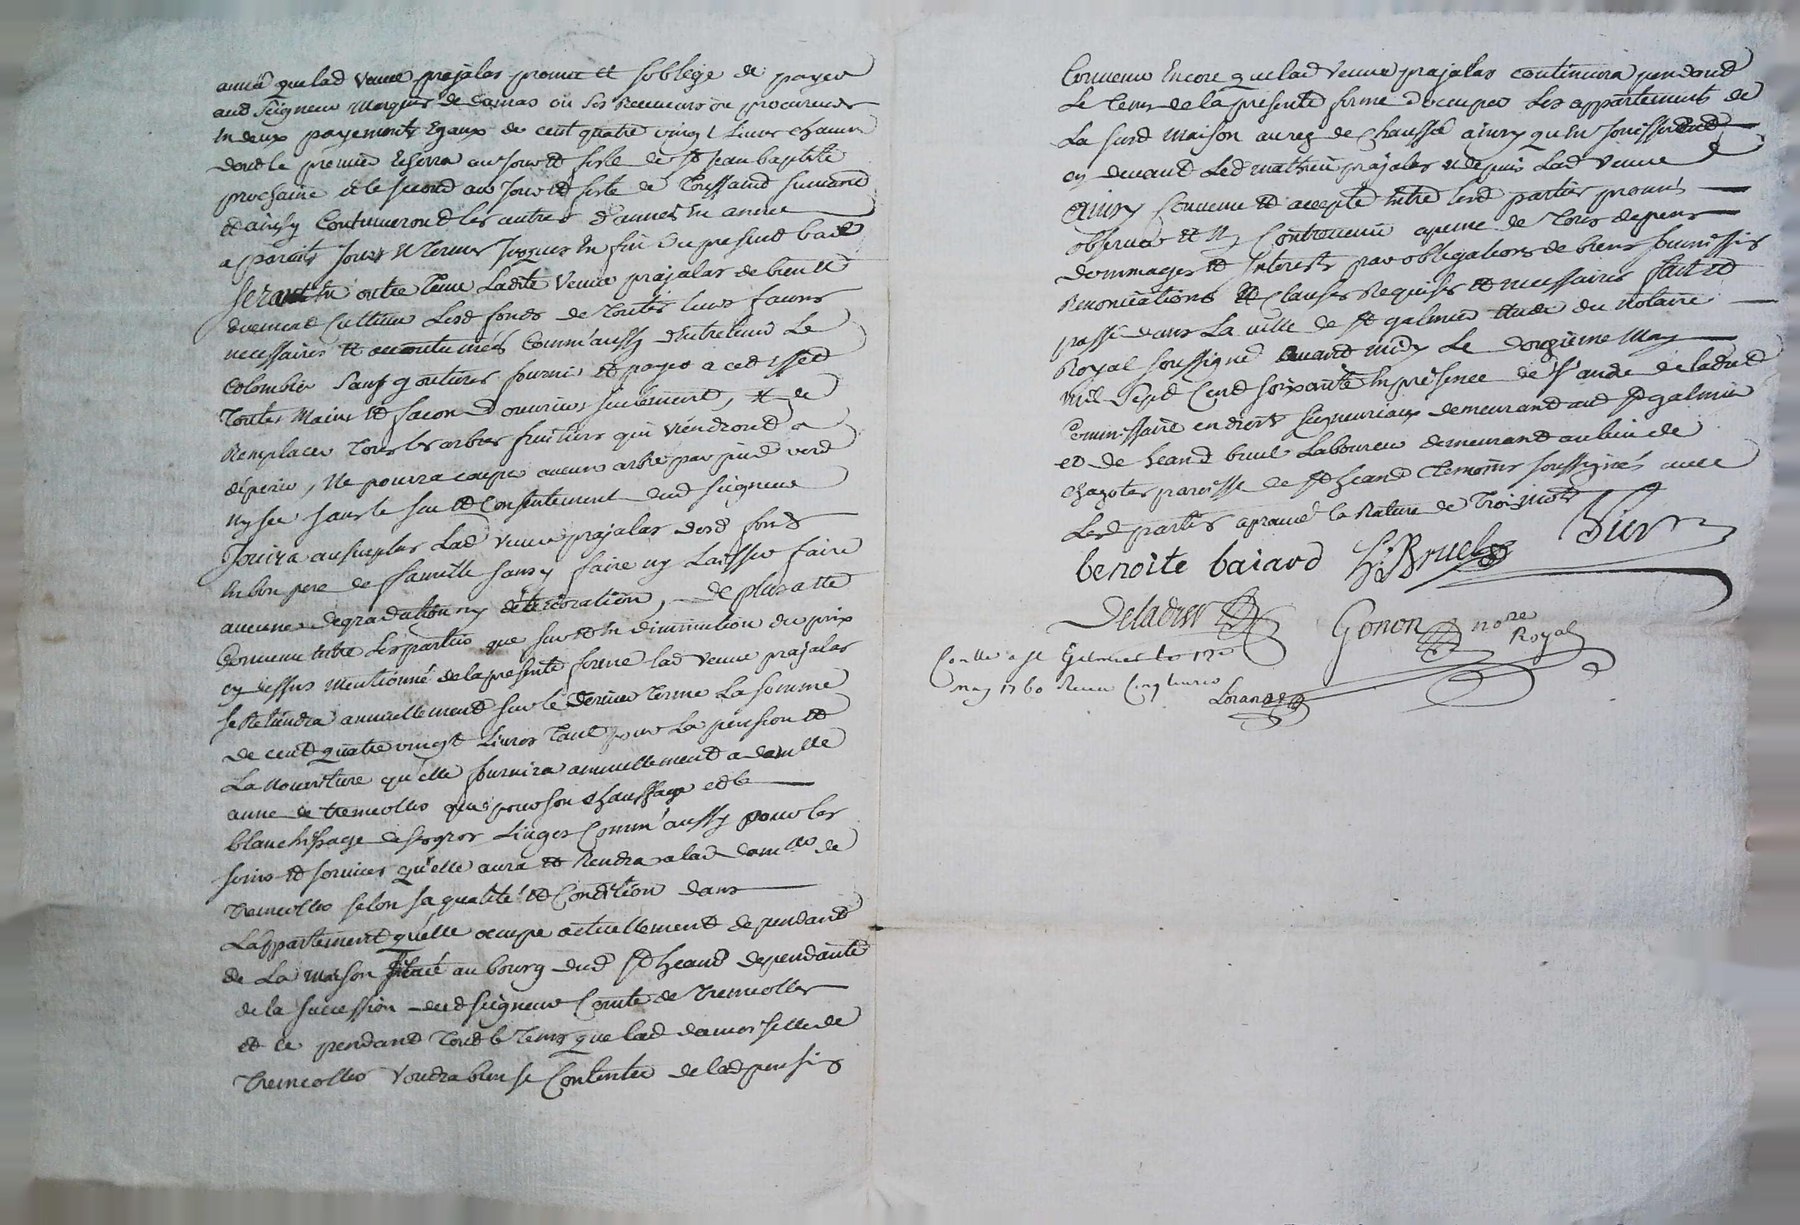 année que lad veuve prajalas promet et soblige de payer
aud seigneur Marquis de Damas ou ses Receveurs ou procureurs
En deux payements Egaux de cent quatre vingt Livres chacun
dont le premier Echerra au jour et feste de st jean baptiste
prochaine et le second au jour et feste de Toussaint suivant
et ainsy Continueront les autres d'année En année
a pareils jours et Termes jusques En fin du present bail
sera En outre tenue Ladite veuve prajalas de bien et
duement cultiver Lesd fonds de Toutes leurs façons
necessaires et accoutumées comm'aussy d'Entretenir Le
Colombier sans goutieres fournir et payer a cet effet
Toutes Mains et façon d'ouvriers seulement, et de
Remplacer Tous les arbres fruitiers qui viendront a
déperir, Ne pourra couper aucun arbre par pied verd
ny sec sans le sceu et Consentement dud seigneur
Jouira au surplus Lad veuve prajalas desd fonds
En bon pere de famille sans y faire ny Laisser faire
aucune degradation ny déterioration, de plus a été
Convenu entre Les parties que sur et En diminution du prix
cy dessus mentionné de la presente ferme lad veuve prajalas
se Retiendra annuellement sur le dernier terme La somme
de cent quatre vingt Livres Tant pour La pension et
La Nourriture qu'elle fournira annuellement a damlle
anne de tremolles que pour son chauffage et le
blanchissage de ses gros Linges Comm'aussy pour les
soins et services qu'elle aura et Rendra a lad damlle de
Tremolles selon sa qualité et Condition dans
L'appartement qu'elle occupe actuellement dependant
de La maison située au bourg dud st heand dependante
de la succession dud seigneur Comte de Tremolles
et ce pendant Tout le Tems que lad damoiselle de
Tremolles voudra bien se Contenter de lad pension
Convenu Encore que lad veuve prajalas continuera pendant
Le tems de la presente ferme d'occuper Les appartements de
La susd Maison au rez de Chaussé ainsy qu'En jouissoient
cy devant Led mathieu prajalas et depuis Lad veuve
Ainsy Convenu et accepté entre lesd parties promis
observer et Ny Contrevenir a peine de Tous depens
dommages et Interests par obligations de biens soumissions
Renonciations et clauses Requises et necessaires fait et
passé dans La ville de st galmier Etude du Notaire
Royal soussigné avant midy Le douzieme May
Mil Sept Cent soixante En présence de sr andré deladret
Commissaire en droits seigneuriaux demeurant aud st galmier
et de heand bruel Laboureur demeurant au lieu de
chazotes paroisse de st heand Temoins soussignés avec
Lesd parties aprouvé la Rature de Trois mots
benoite baiard h Bruel
Deladret Gonon nore
Royal
Conllé a st Galmier le 17e
may 1760 Receu Cinq livres